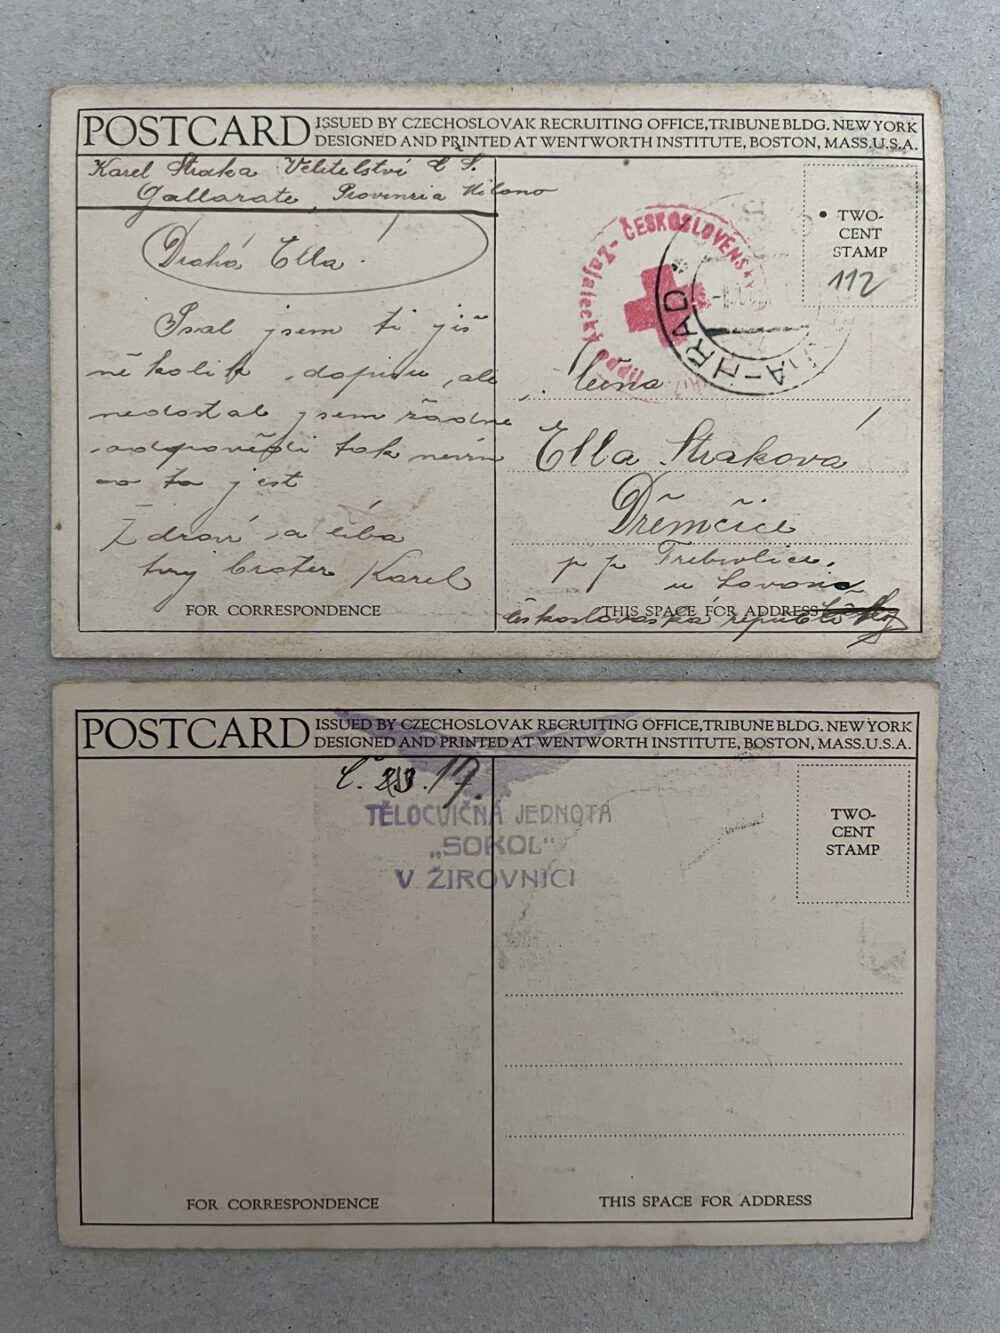 POSTCARD
ISSUED BY CZECHOSLOVAK RECRUITING OFFICE, TRIBUNE BLDG. NEW YORK
DESIGNED AND PRINTED AT WENTWORTH INSTITUTE, BOSTON, MASS. U.S.A.
Karel Straka Velitelství
Gallarate, Provincia Milano
Drahá Ella!
Psal jsem ti již
několik dopisu, ale
nedostal jsem žádné
odpovědi tak nevím
co to jest
Zdraví a líbá
tvůj bratr Karel
FOR CORRESPONDENCE
ČESKOSLOVENSK
Zajatecký
HRAD
TWO-
CENT
STAMP
112
Ella Strakova
Dřemčice
p p Třebivlice,
u Lovosic
THIS SPACE FOR ADDRESS
československá
POSTCARD
ISSUED BY CZECHOSLOVAK RECRUITING OFFICE, TRIBUNE BLDG. NEW YORK
DESIGNED AND PRINTED AT WENTWORTH INSTITUTE, BOSTON, MASS. U.S.A.
17.
TĚLOCVIČNÁ JEDNOTA
„SOKOL"
V ŽIROVNICI
TWO-
CENT
STAMP
FOR CORRESPONDENCE
THIS SPACE FOR ADDRESS